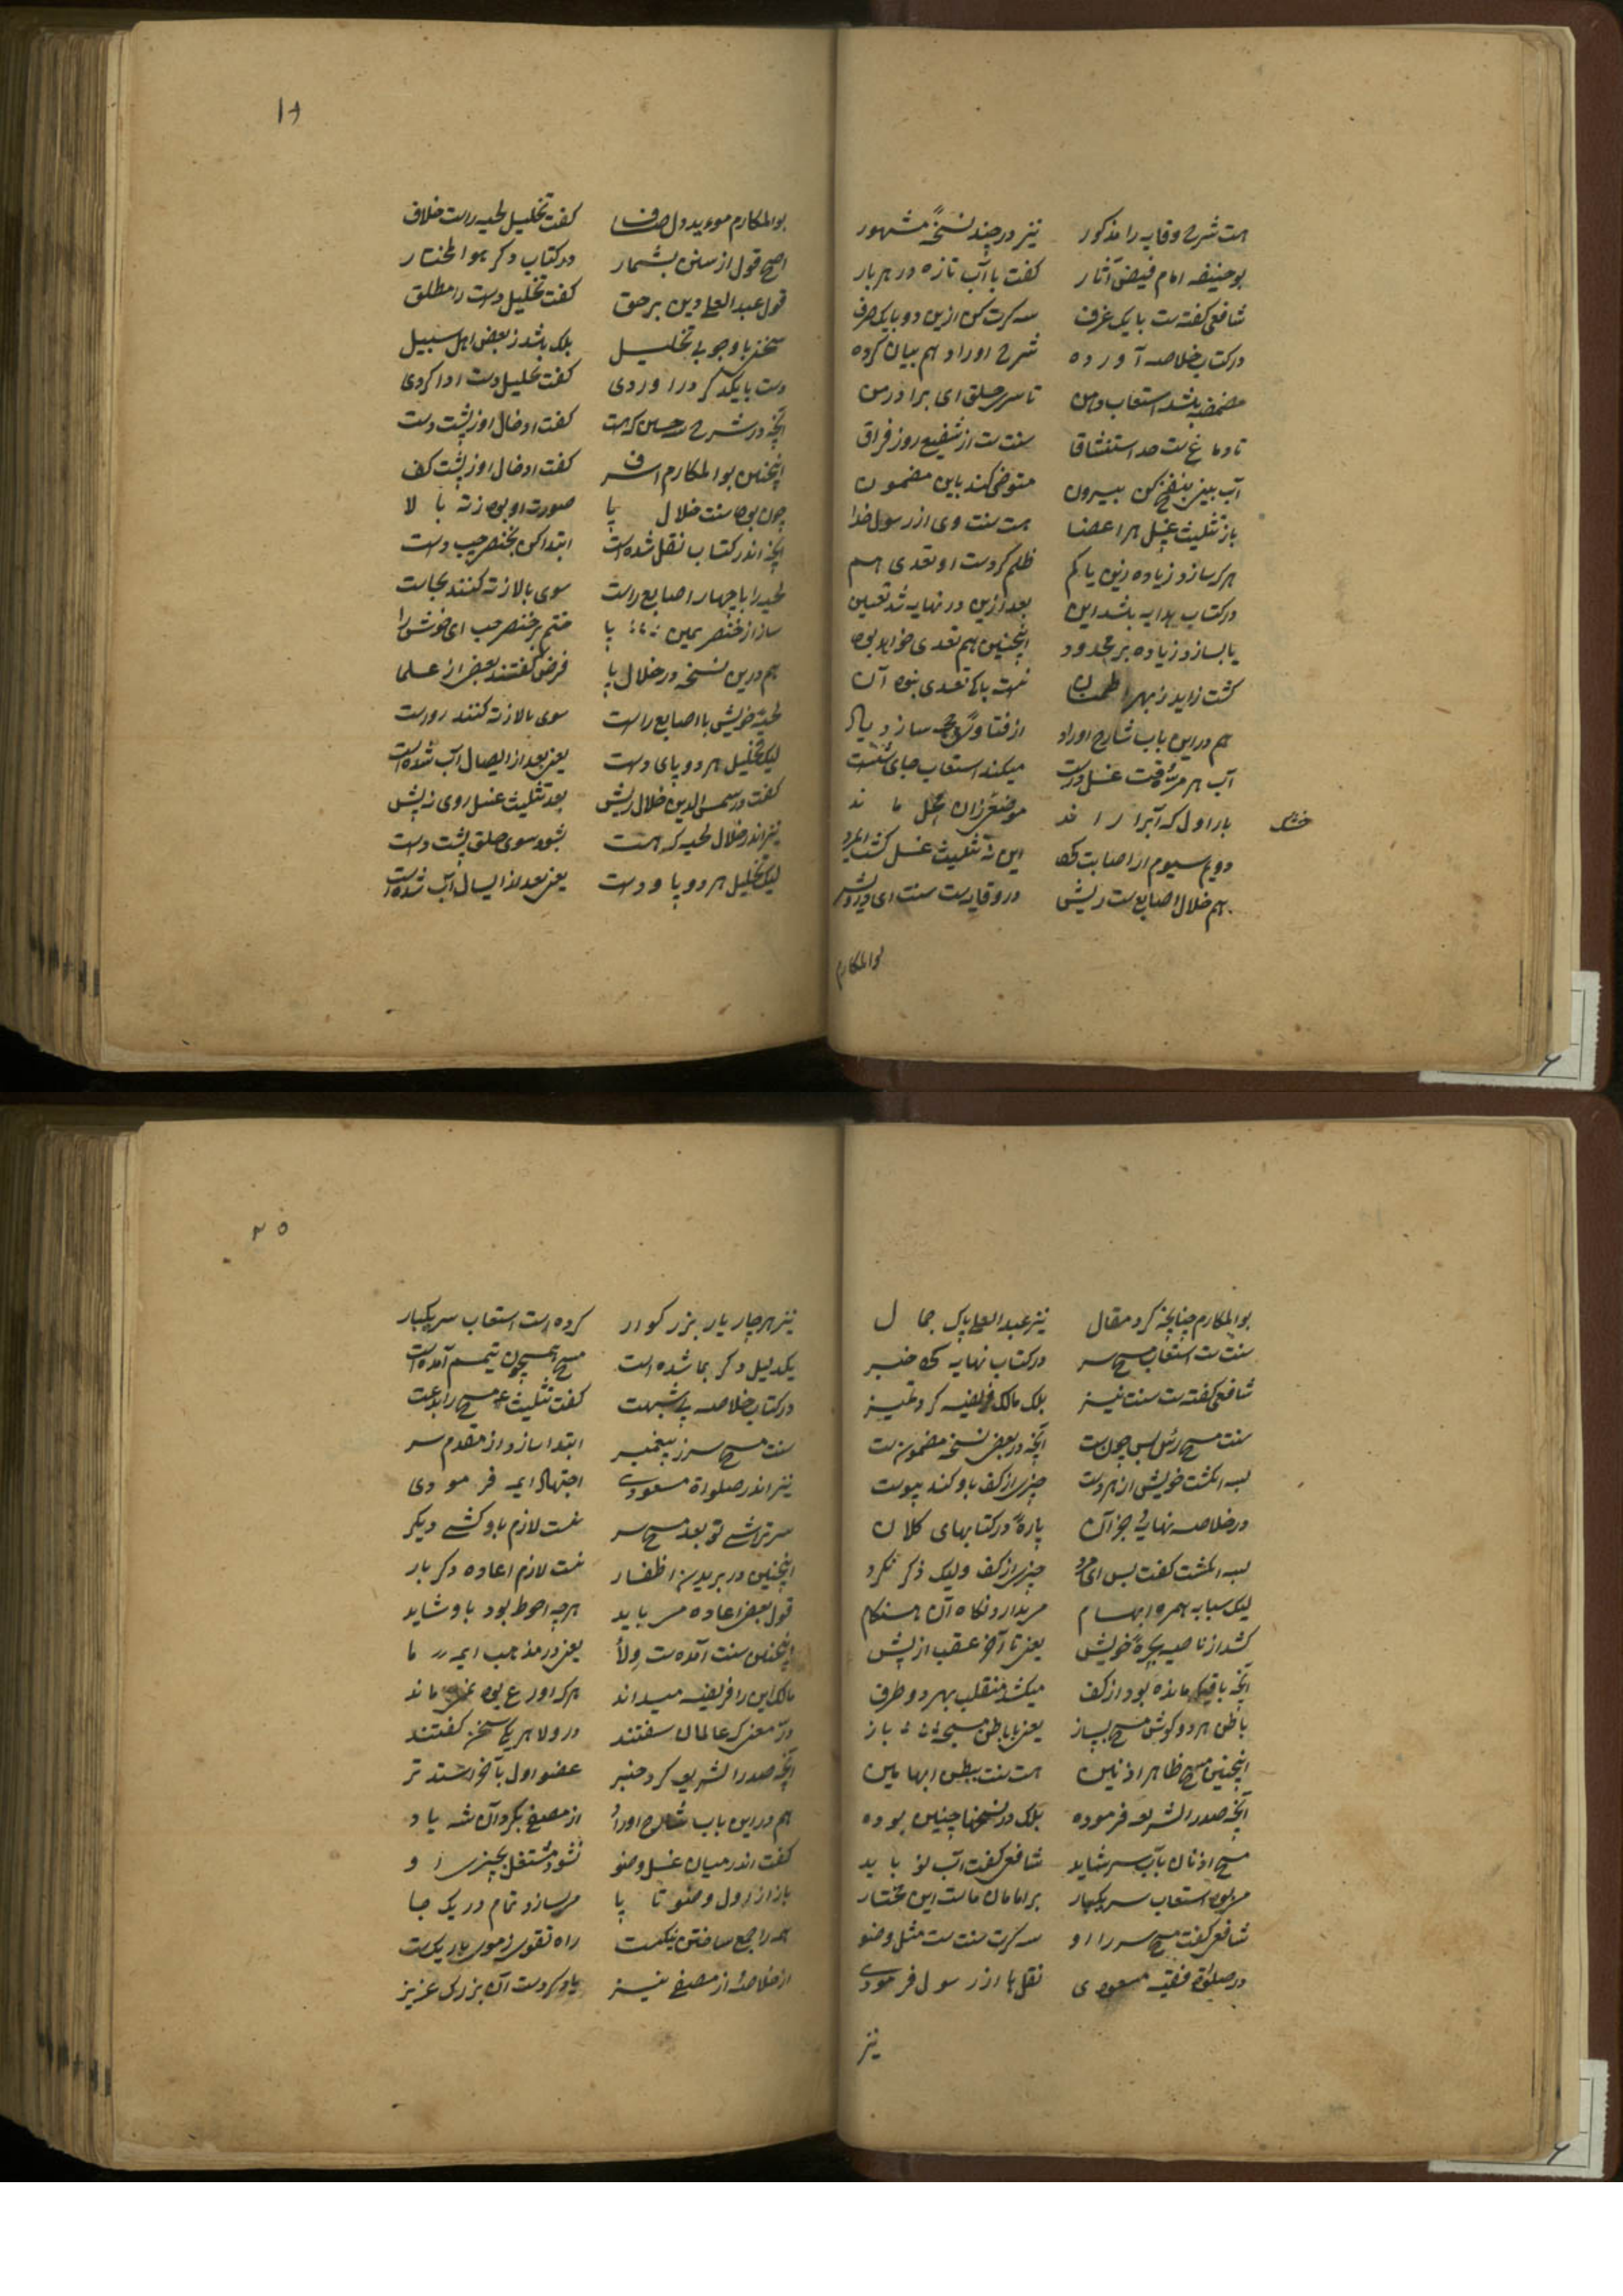 هست شرح وقایه را مذکور نیز در چند نسخهٔ مشهور
بوحنیفه امام فیض آثار کفت با آب تازه در هر بار
شافعی کفته ست با یک غرف سه کرت کن ازین دو با یک حرف
در کتاب خلاصه آورده شرح اوراد هم بیان کرده
مضمضه باشد استعاب دهن تا سر حلق ای برادر من
تا دماغ ست حد استنشاقا سنت ست از شفیع روز فراق
آب بینی بنفخ کن بیرون متوضی کند باین مضمون
باز تثلیث غسل هر اعضا هست سنت وی از رسول خدا
هر که سازد زیاده زین یا کم ظلم کردست او تعدی هم
در کتاب هدایه باشد این بعد ازین در نهایه شد تعیین
یا بسازد زیاده بر محدود اینچنین هم تعدی خواهد بود
کشت زاید ز بهر اطمنان نیست باک تعدی نبود آن
هم دراین باب شارح اوراد از فتاوی حجه سازد یاد
آب هر مرتبه وقت غسل درست میکند استعاب جای شست
خشک
بار اول که آبرا راند موضعی زان محل ماند
دویم سیوم ار اصابت کرد این نه تثلیث غسل کشت ایمرد
هم خلال اصابع ست و ریش در وقایه ست سنت ای درویش
بوالمکارم
۱۹
بوالمکارم موید دل صاف کفت تخلیل لحیه راست خلاف
اصح قول از سنن بشمار در کتاب دکر هو المختار
قول عبد العلی دین بر حق کفت تخلیل دست را مطلق
سخنی با وجوب تخلیل بلک باشد ز بعض اهل سبیل
دست با یکدکر در اوردی کفت تخلیل دست ادا کردی
آنچه در شرح شه حسین که هست کفت ادخال او ز پشت دست
اینچنین بوالمکارم اشرف کفت ادخال او ز پشت کف
چون بود سنت خلال پا صورت او بود ز ته بالا
آنچه اندر کتاب نقل شده است ابتدا کن بخنصر چپ دست
لحیه را با چهار اصابع راست سوی بالا ز ته کنند بجاست
ساز از خنصر یمین پا ختم بر خنصر چپ ای خوش را
هم درین نسخه در خلال پا فرض کفتند بعض از علما
لحیهٔ خویش با اصابع راست سوی بالا ز ته کنند رواست
لیک تخلیل هر دو پای و دست یعنی بعد از ایصال آب شده است
کفت در شمس الدین خلال ریش بعد تثلیث غسل روی ز پیش
نیز اندر خلال لحیه که هست بشود سوی حلق پشت دست
لیک تخلیل هر دو پا و دست یعنی بعد از ایسال آب شده است
بوالمکارم چنانچه کرد مقال نیز عبد العلی پاک جمال
سنت ست استعاب مسح سر در کتاب نهایه کرد خبر
شافعی کفته ست سنت نیز بلک مالک فریضه کرد تمیز
سنت مسح رئس پس چون ست آنچه در بعض نسخه مضمون ست
سه انکشت خویش از هر دست چیزی از کف باو کند پیوست
در خلاصه نهایه جز آن پارهٔ در کتابهای کلان
سه انکشت کفت پس ای مرد چیزی از کف ولیک ذکر نکرد
لیک سبابه همره ابهام میبدارد نکاه آن هنکام
کشد از ناصیه بچرهٔ خویش یعنی تا آخر عقب از پیش
آنچه باقیکه مانده بود از کف میکشد منقلب بهر دو طرف
باطن هر دو کوش مسح بساز یعنی با باطن مسبحه باز
اینچنین مسح ظاهر اذنین هست سنت ببطن ابهامین
آنچه صدر الشریعه فرموده بلک در نسخها چنین بوده
مسح اذنان بآب سر شاید شافعی کفت آب نو باید
می بود استعاب سر یکبار بر امامان ماست این مختار
شافعی کفت مسح سر را او سه کرت سنت ست مثل وضو
در صلوٰة فقیه مسعودی نقل ها از رسول فرمودی
نیز
۲۰
نیز هر چار یار بزرکوار کرده است استعاب سر یکبار
یکدلیل دکر بما شده است مسح همچون تیمم آمده است
در کتاب خلاصه بی شبهت کفت تثلیث مسح را بدعت
سنت مسح سر ز پیغمبر ابتدا سازد از مقدم سر
نیز اندر صلواة مسعودی اجتهاد ایمه فرمودی
سر تراشی تو بعد مسح سر نیست لازم باو کشی دیکر
اینچنین در بریدن اظفار نیست لازم اعاده دکر بار
قول بعض اعاده می باید هرچه احوط بود باو شاید
اینچنین سنت آمده ست ولأ یعنی در مذهب ایمهٔ ما
مالک این را فریضه میداند هر که اورع بود نمی ماند
در معنی که عالمان سفتند در ولا هر یکی سخن کفتند
آنچه صدر الشریعه کرد خبر عضو اول بآخر استد تر
هم دراین باب شارح اوراد از مصفی بکرد آن شه یاد
کفت اندر میان غسل وضو نشود مشتغل بچیزی او
باز از اول وضو تا پا میسازد تمام در یک جا
همه را جمع ساختن نیکست راه تقوی ز موی باریکست
از خلاصهٔ از مصفی نیز یاد کردست آن بزرک عزیز